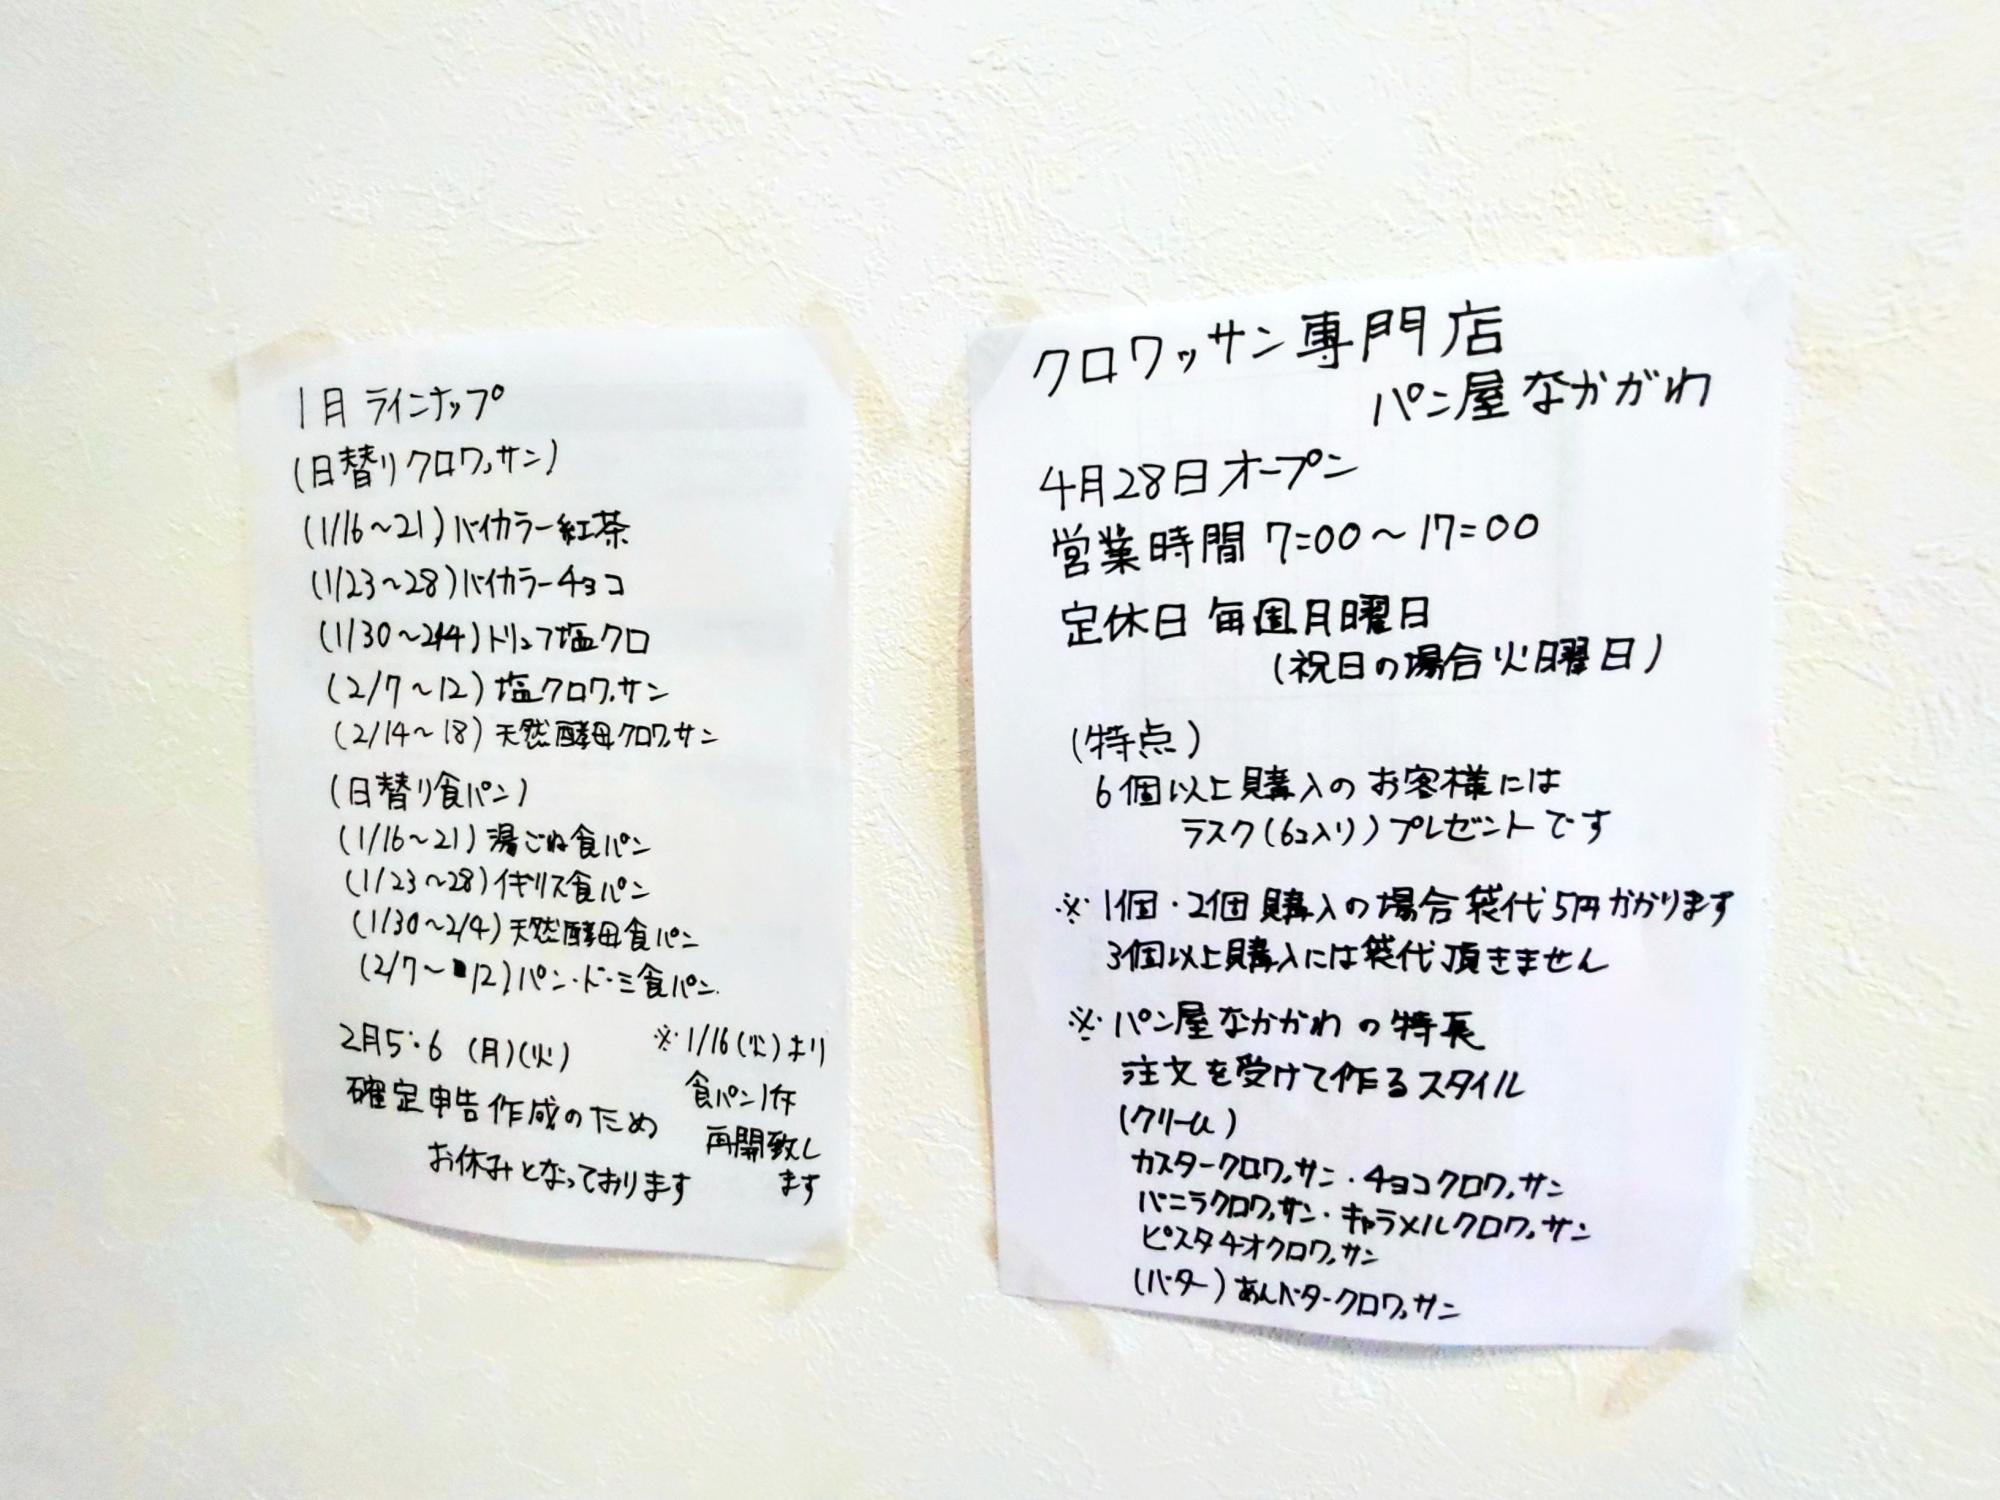 1月 ラインナップ
(日替りクロワッサン)
(1/16〜21)バイカラー紅茶
(1/23〜28)バイカラーチョコ
(1/30〜2/4)トリュフ塩クロ
(2/7〜12)塩クロワッサン
(2/14〜18)天然酵母クロワッサン
(日替り食パン)
(1/16〜21)湯ごね食パン
(1/23〜28)イギリス食パン
(1/30〜2/4)天然酵母食パン
(2/7〜12)パン・ド・ミ食パン
2月5・6 (月)(火)
確定申告作成のため
お休みとなっております
※1/16(火)より
食パン1斤
再開致し
ます
クロワッサン専門店
パン屋なかがわ
4月28日オープン
営業時間 7:00〜17:00
定休日 毎週月曜日
(祝日の場合火曜日)
(特点)
6個以上購入のお客様には
ラスク(6コ入り)プレゼントです
※1個・2個購入の場合袋代5円かかります
3個以上購入には袋代頂きません
※パン屋なかがわの特長
注文を受けて作るスタイル
(クリーム)
カスタークロワッサン・チョコクロワッサン
バニラクロワッサン・キャラメルクロワッサン
ピスタチオクロワッサン
(バター)あんバタークロワッサン